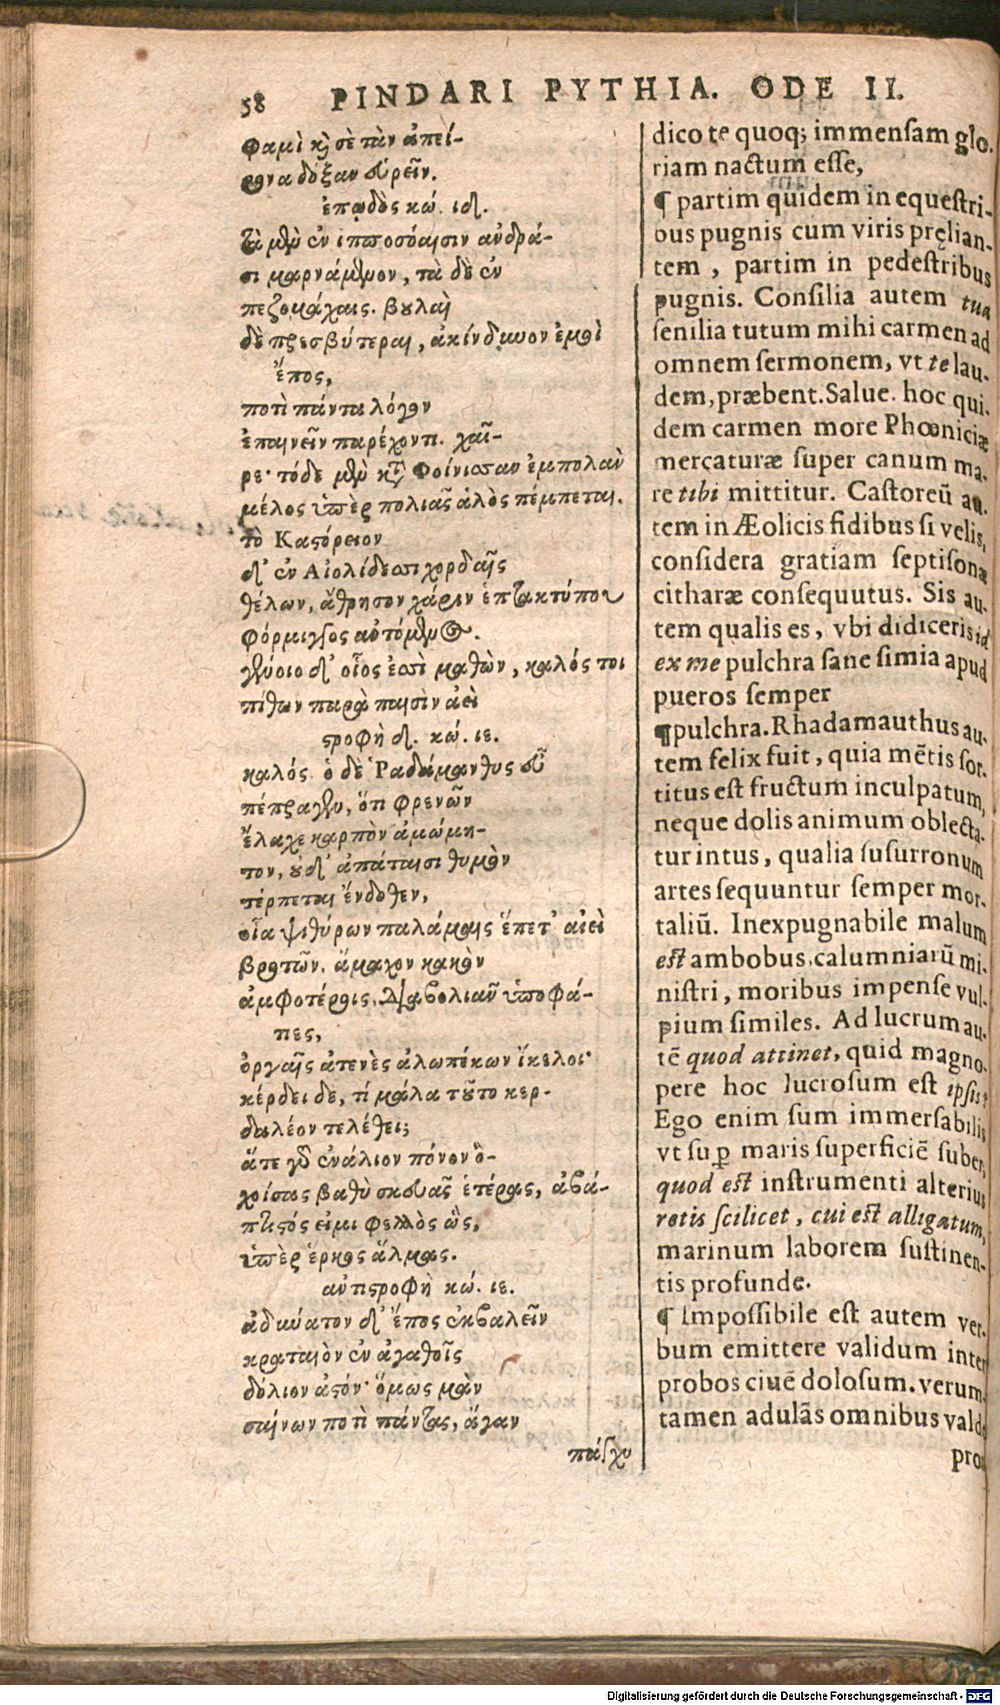 58 PINDARI PYTHIA. ODE II.
φαμὶ καὶ σὲ τὰν ἀπεί-
ρονα δόξαν εὑρεῖν.
ἐπῳδὸς κώ. ιδ.
τὰ μὲν ἐν ἱπποσόαισιν ἀνδρά-
σι μαρνάμενον, τὰ δὲ ἐν
πεζομάχαις. βουλαὶ
δὲ πρεσβύτεραι, ἀκίνδυνον ἐμοὶ
ἔπος,
ποτὶ πάντα λόγον
ἐπαινεῖν παρέχοντι. χαῖ-
ρε· τόδε μὲν κατὰ Φοίνισσαν ἐμπολὰν
μέλος ὑπὲρ πολιᾶς ἁλὸς πέμπεται.
τὸ Καστόρειον
δ' ἐν Αἰολίδεσσι χορδαῖς
θέλων, ἄθρησον χάριν ἑπτακτύπου
φόρμιγγος ἀντόμενος.
γένοιο δ' οἷος ἐσσὶ μαθών, καλός τοι
πίθων παρὰ παισὶν ἀεὶ
στροφὴ δ. κώ. ιε.
καλός. ὁ δὲ Ῥαδάμανθυς εὖ
πέπραγεν, ὅτι φρενῶν
ἔλαχε καρπὸν ἀμώμη-
τον, οὐδ' ἀπάταισι θυμὸν
τέρπεται ἔνδοθεν,
οἷα ψιθύρων παλάμαις ἕπετ' αἰεὶ
βροτῶν. ἄμαχον κακὸν
ἀμφοτέροις, διαβολιᾶν ὑποφά-
τιες,
ὀργαῖς ἀτενὲς ἀλωπέκων ἴκελοι·
κέρδει δὲ, τί μάλα τοῦτο κερ-
δαλέον τελέθει;
ἅτε γὰρ ἐνάλιον πόνον ὀ-
χοίσας βαθὺ σκευᾶς ἑτέρας, ἀβά-
πτιστός εἰμι φελλὸς ὣς,
ὑπὲρ ἕρκος ἅλμας.
ἀντιστροφὴ κώ. ιε.
ἀδύνατον δ' ἔπος ἐκβαλεῖν
κραταιὸν ἐν ἀγαθοῖς
δόλιον ἀστόν· ὅμως μὰν
σαίνων ποτὶ πάντας, ἄγαν
πάγχυ
dico te quoq; immensam glo-
riam nactum esse,
¶ partim quidem in equestri-
bus pugnis cum viris pręlian-
tem, partim in pedestribus
pugnis. Consilia autem tua
senilia tutum mihi carmen ad
omnem sermonem, vt te lau-
dem, præbent. Salue. hoc qui-
dem carmen more Phœniciæ
mercaturæ super canum ma-
re tibi mittitur. Castoreū au-
tem in Æolicis fidibus si velis,
considera gratiam septisonæ
citharæ consequutus. Sis au-
tem qualis es, vbi didiceris id
ex me pulchra sane simia apud
pueros semper
¶pulchra. Rhadamauthus au-
tem felix fuit, quia mētis sor-
titus est fructum inculpatum,
neque dolis animum oblecta-
tur intus, qualia susurronum
artes sequuntur semper mor-
taliū. Inexpugnabile malum
est ambobus, calumniarū mi-
nistri, moribus impense vul-
pium similes. Ad lucrum au-
tē quod attinet, quid magno-
pere hoc lucrosum est ipsis?
Ego enim sum immersabilis
vt suꝑ maris superficiē suber,
quod est instrumenti alterius
retis scilicet, cui est alligatum,
marinum laborem sustinen-
tis profunde.
¶ Impossibile est autem ver-
bum emittere validum inter
probos ciuē dolosum. verum-
tamen adulās omnibus valde
pror
Digitalisierung gefördert durch die Deutsche Forschungsgemeinschaft - DFG